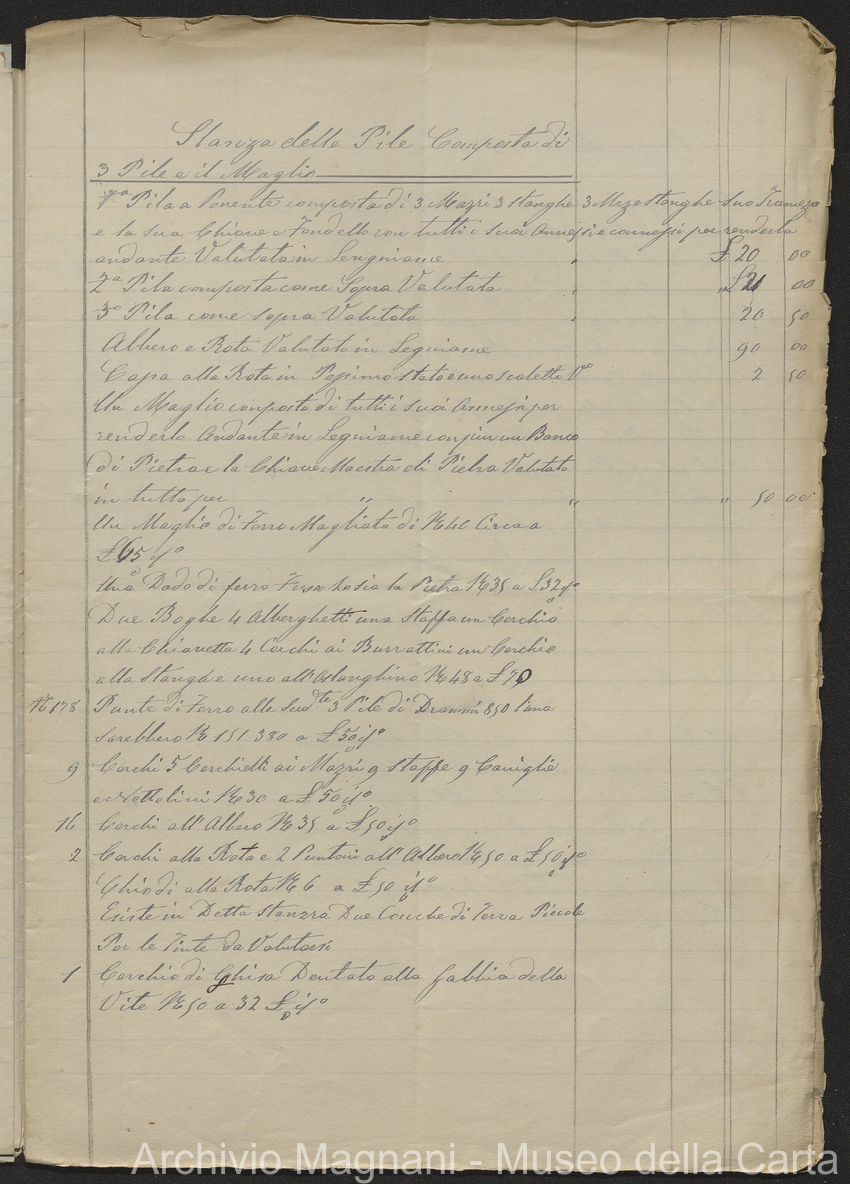 Stanza delle Pile Composta di
3 Pile e il Maglio
1a Pila a Ponente composta di 3 Mazzi 3 stanghe 3 Meze stanghe suo Tramezo
e la sua Chiave e Fondello con tutti i suoi Annessi e connessi per renderla
andante Valutata in Lengniame " £ 20 00
2a Pila composta come Sopra Valutata " " £ 21 00
3a Pila come sopra Valutata " 20 50
Albero e Rota Valutato in Legniame 90 00
Capa alla Rota in Pessimo stato e uno scaletto Vo 2 50
Un Maglio conposto di tutti i suoi Annessi per
renderlo Andante in Legniame con piu un Banco
di Pietra e la Chiave Maestra di Pietra Valutato
in tutto per " " " 50 00
Un Maglio di Ferro Magliato di K 40 Circa a
£ 65 %
Una Dado di ferro Fisso sia la Pietra K 35 a £ 32 %
Due Boghe 4 Alberghetti una Staffa un Cerchio
alla Chiavetta 4 Cerchi ai Burrattini un Cerchio
alla Stanga e uno all'Astanghino K 48 a £ 70
N 178 Punte di Ferro alle Sudte 3 Pile di Drammi 850 l'una
sarebbero K 151 380 a £ 50 %
9 Cerchi 5 Cerchietti ai Mazzi 9 Staffe 9 Caviglie
e Nottolini K 30 a £ 50 %
16 Cerchi all'Albero K 35 a £ 50 %
2 Cerchi alla Rota e 2 Puntoni all'Albero K 50 a £ 50 %
Chiodi alla Rota K 6 a £ 50 %
Esiste in Detta Stanzza Due Conche di Terra Piccole
Per le Tinte da Valutarsi
1 Cerchio di Ghisa Dentato alla gabbia della
Vite K 50 a 32 £ %
Archivio Magnani - Museo della Carta